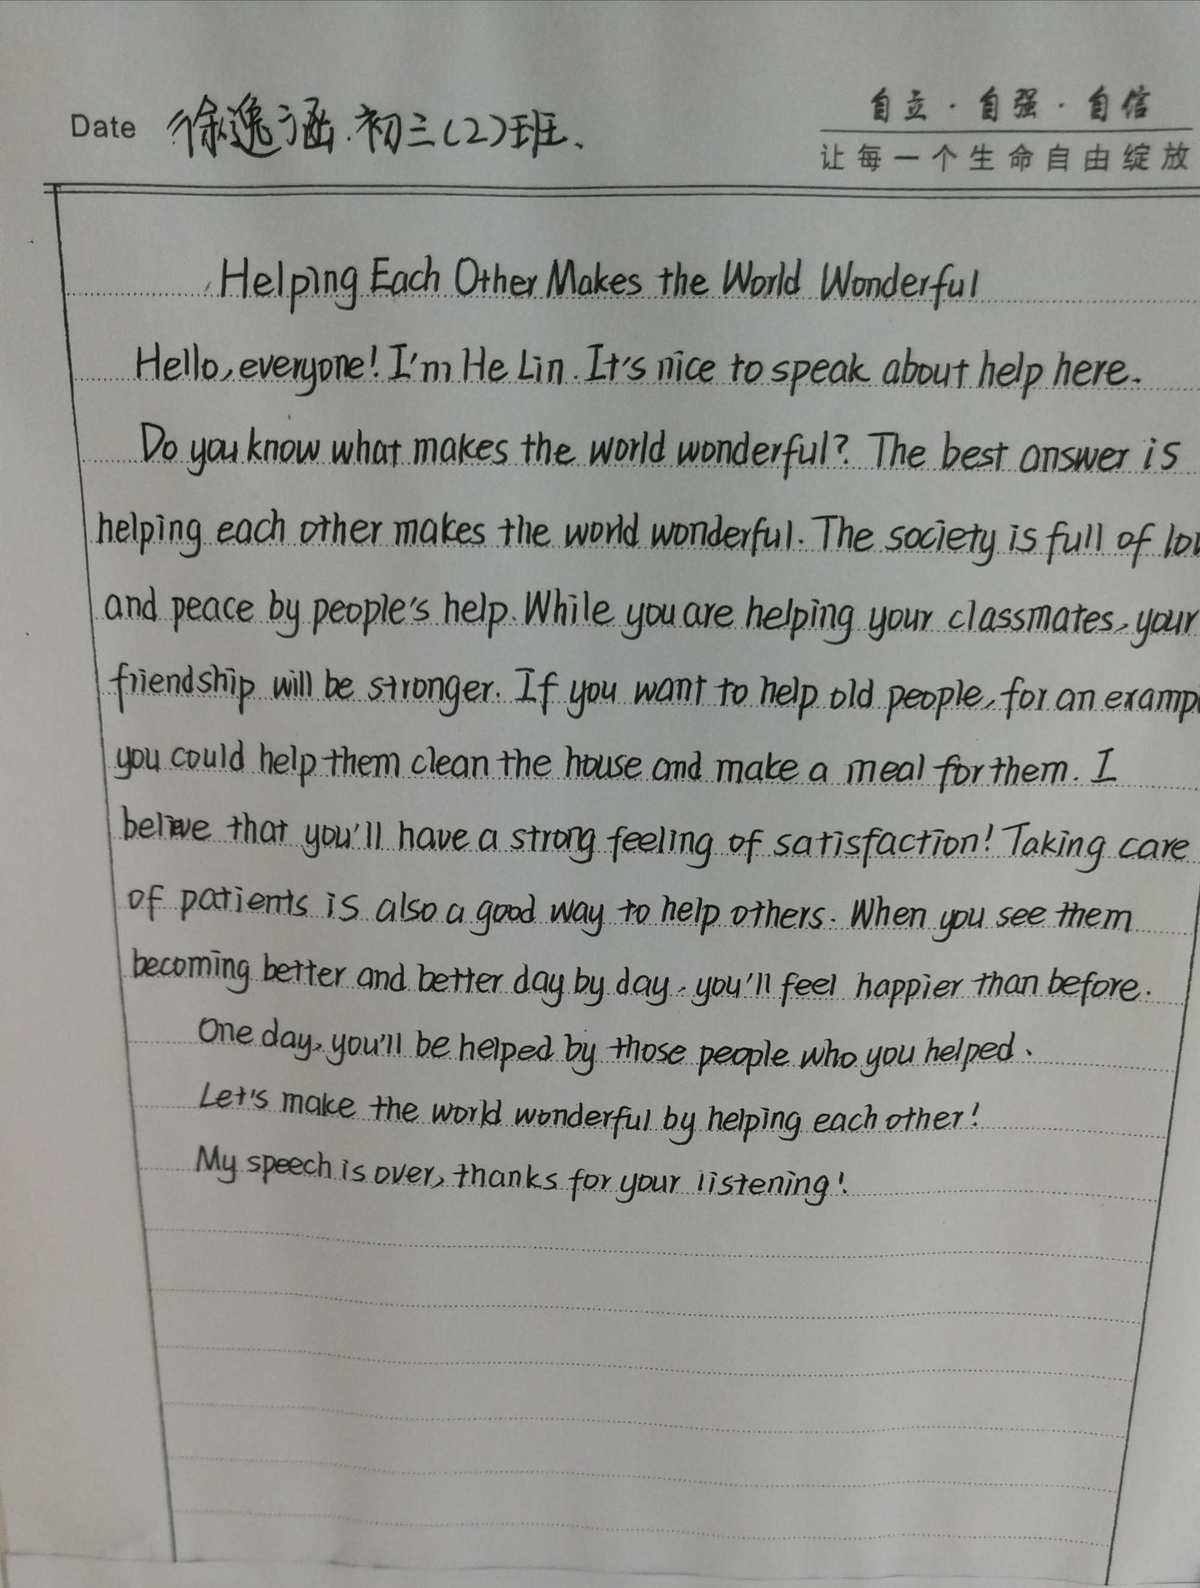 Date 徐逸涵.初三(2)班、
自立·自强·自信
让每一个生命自由绽放
Helping Each Other Makes the World Wonderful
Hello, everyone! I'm He Lin. It's nice to speak about help here.
Do you know what makes the world wonderful? The best answer is
helping each other makes the world wonderful. The society is full of lov
and peace by people's help. While you are helping your classmates, your
friendship will be stronger. If you want to help old people, for an exampl
you could help them clean the house and make a meal for them. I
believe that you'll have a strong feeling of satisfaction! Taking care
of patients is also a good way to help others. When you see them
becoming better and better day by day, you'll feel happier than before.
One day, you'll be helped by those people who you helped.
Let's make the world wonderful by helping each other!
My speech is over, thanks for your listening!